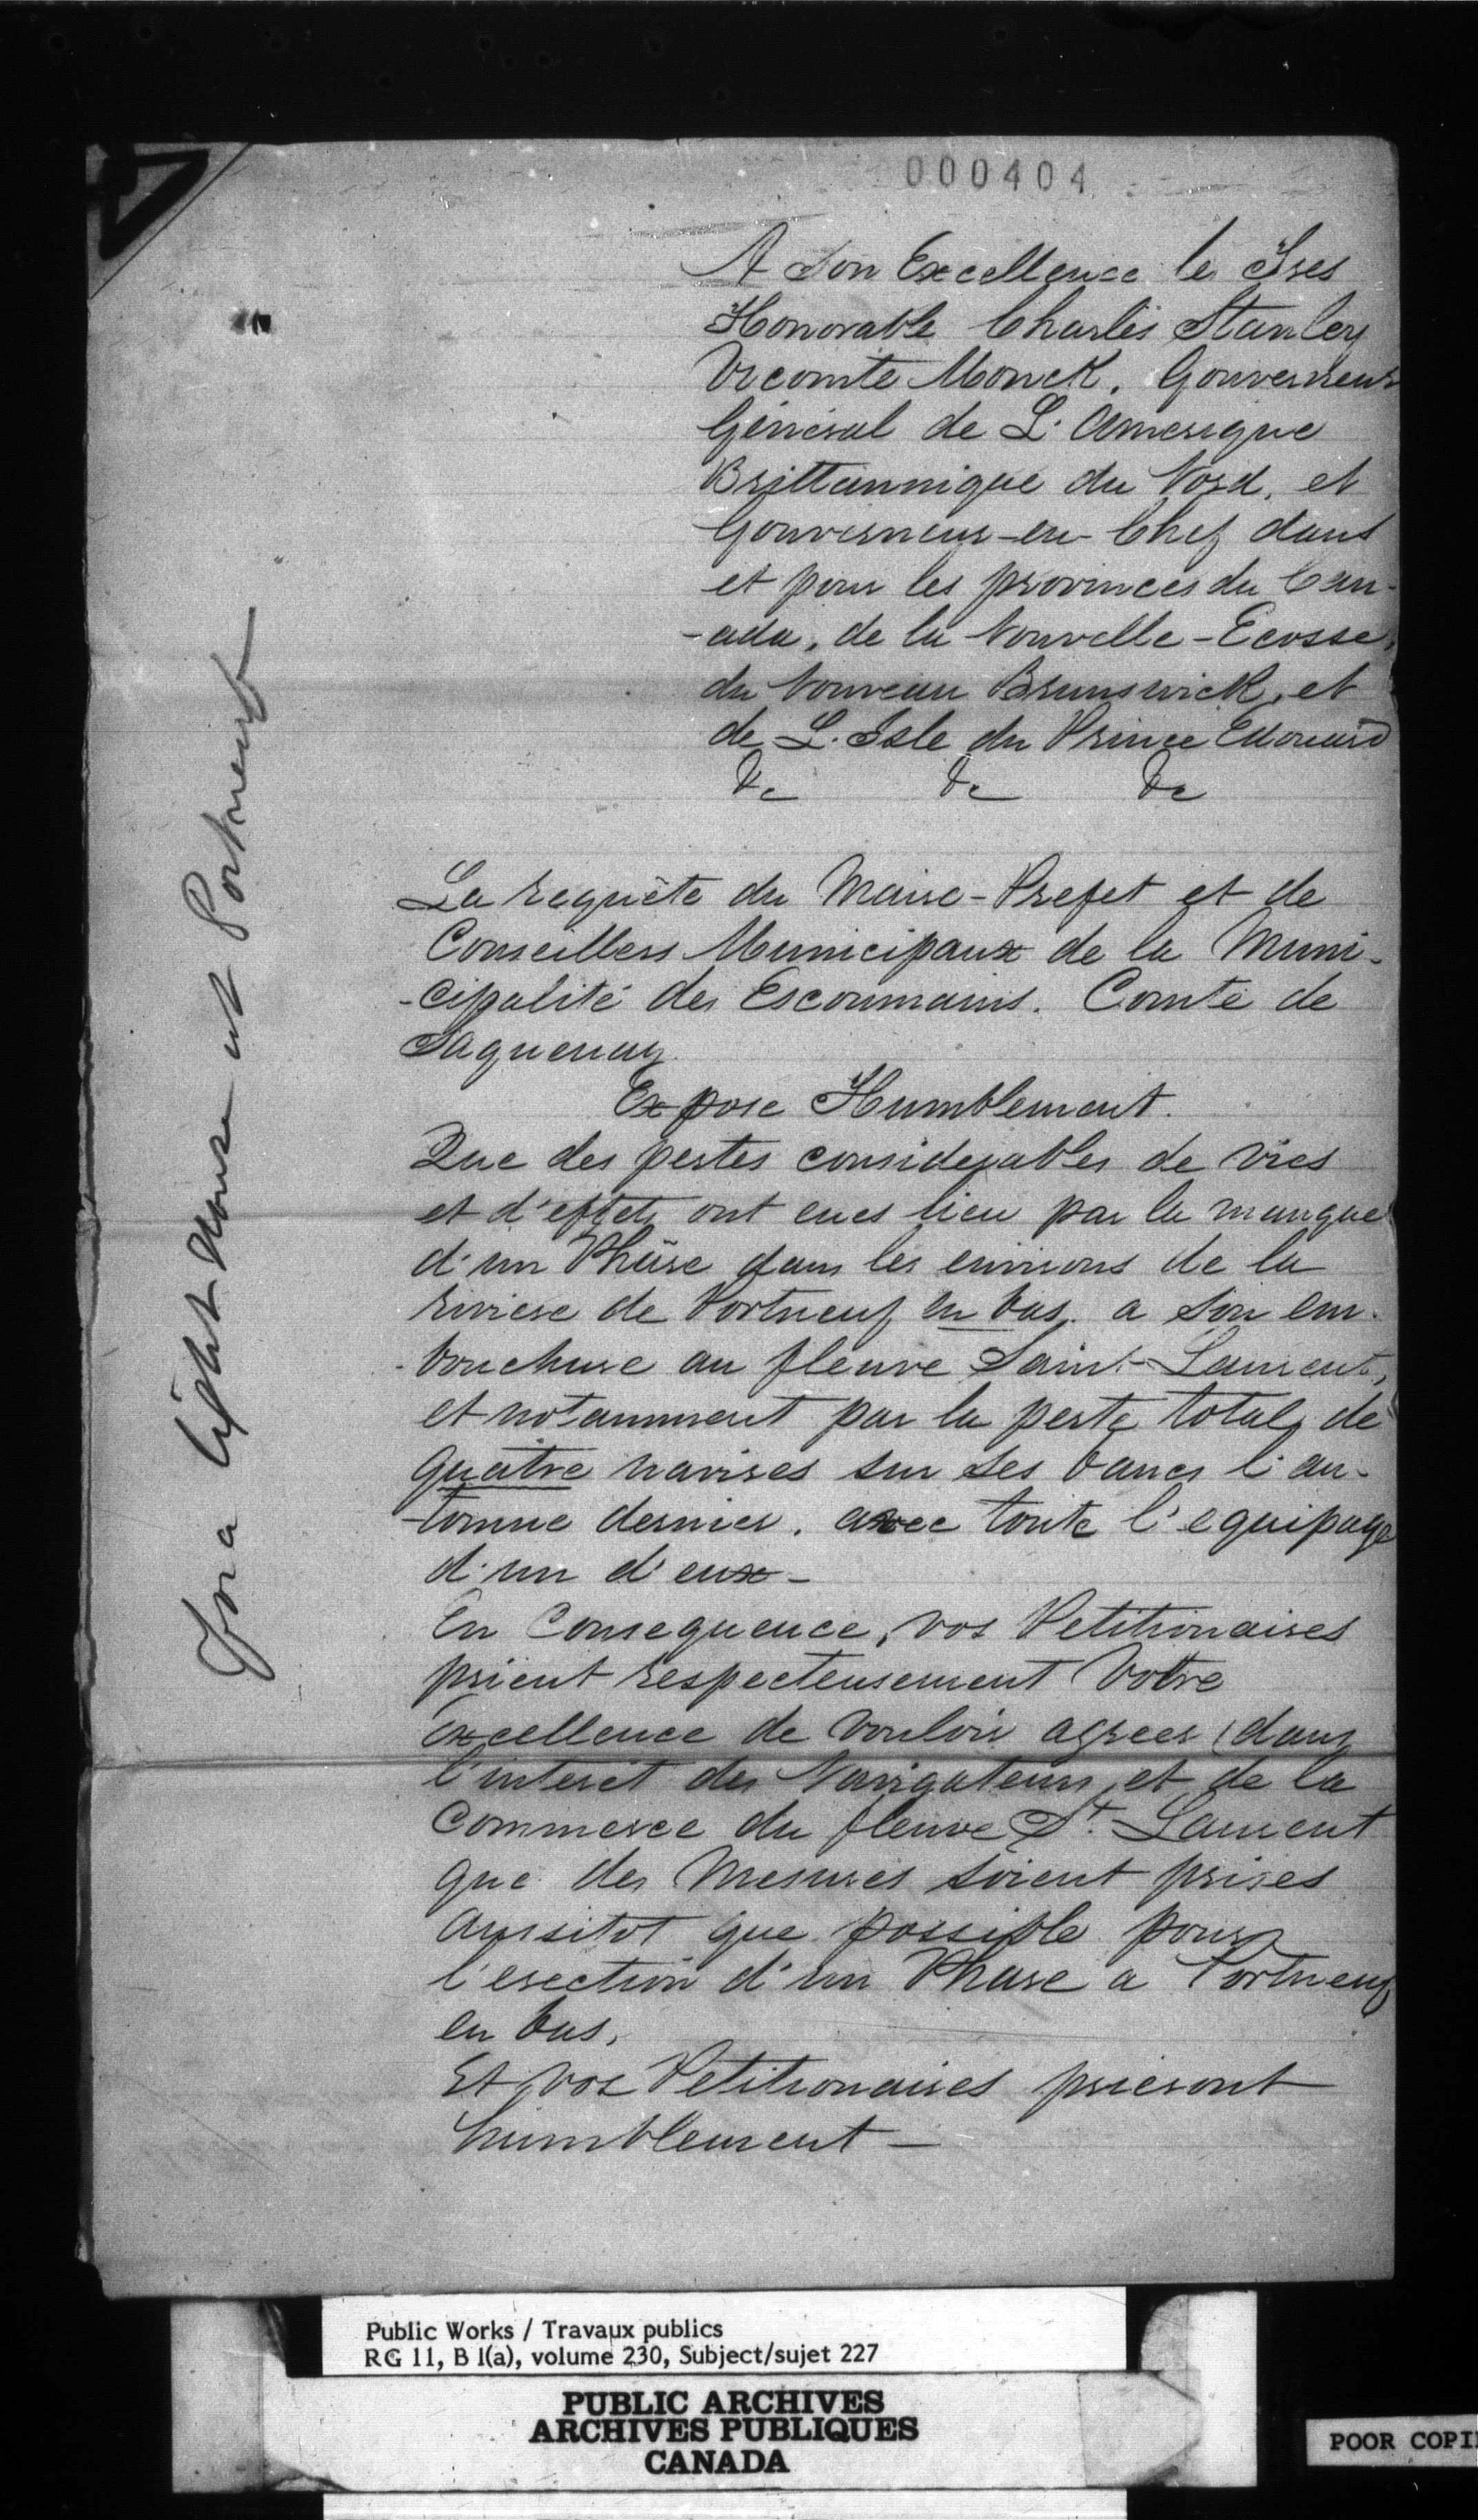 000404
A Son Excellence le Tres
Honorable Charles Stanley
Vicomte Monck, Gouverneur
Géneral de L'Amerique
Brittannique du Nord, et
Gouverneur-en-Chef dans
et pour les provinces du Can-
-ada, de la Nouvelle-Ecosse,
du Nouveau Brunswick, et
de L'Isle du Prince Edouard
&c &c &c
For a light House at Portneuf
La requête du Maire-Prefet et de
Conseillers Municipaux de la Muni-
-cipalité des Escoumains. Comté de
Saguenay
Expose Humblement.
Que des pertes considerables de vies
et d'effets ont eues lieu par le manque
d'un Phâre dans les environs de la
riviere de Portneuf en bas, a son em-
-bouchure au fleuve Saint-Laurent,
et notamment par la perte total de
quatre navires sur ses bancs l'au-
-tomne dernier, avec toute l'equipage
d'un d'eux -
En Consequence, vos Petitionaires
prient respecteusement Votre
Excellence de vouloir agreer (dans
l'interet des Navigateurs, et de la
Commerce du fleuve St. Laurent
que des Mesures soient prises
aussitot que possible pour
l'erection d'un Phare a Portneuf
en bas,
Et vos Petitionaires prieront
humblement -
Public Works / Travaux publics
RG 11, B 1(a), volume 230, Subject/sujet 227
PUBLIC ARCHIVES
ARCHIVES PUBLIQUES
CANADA
POOR COPI